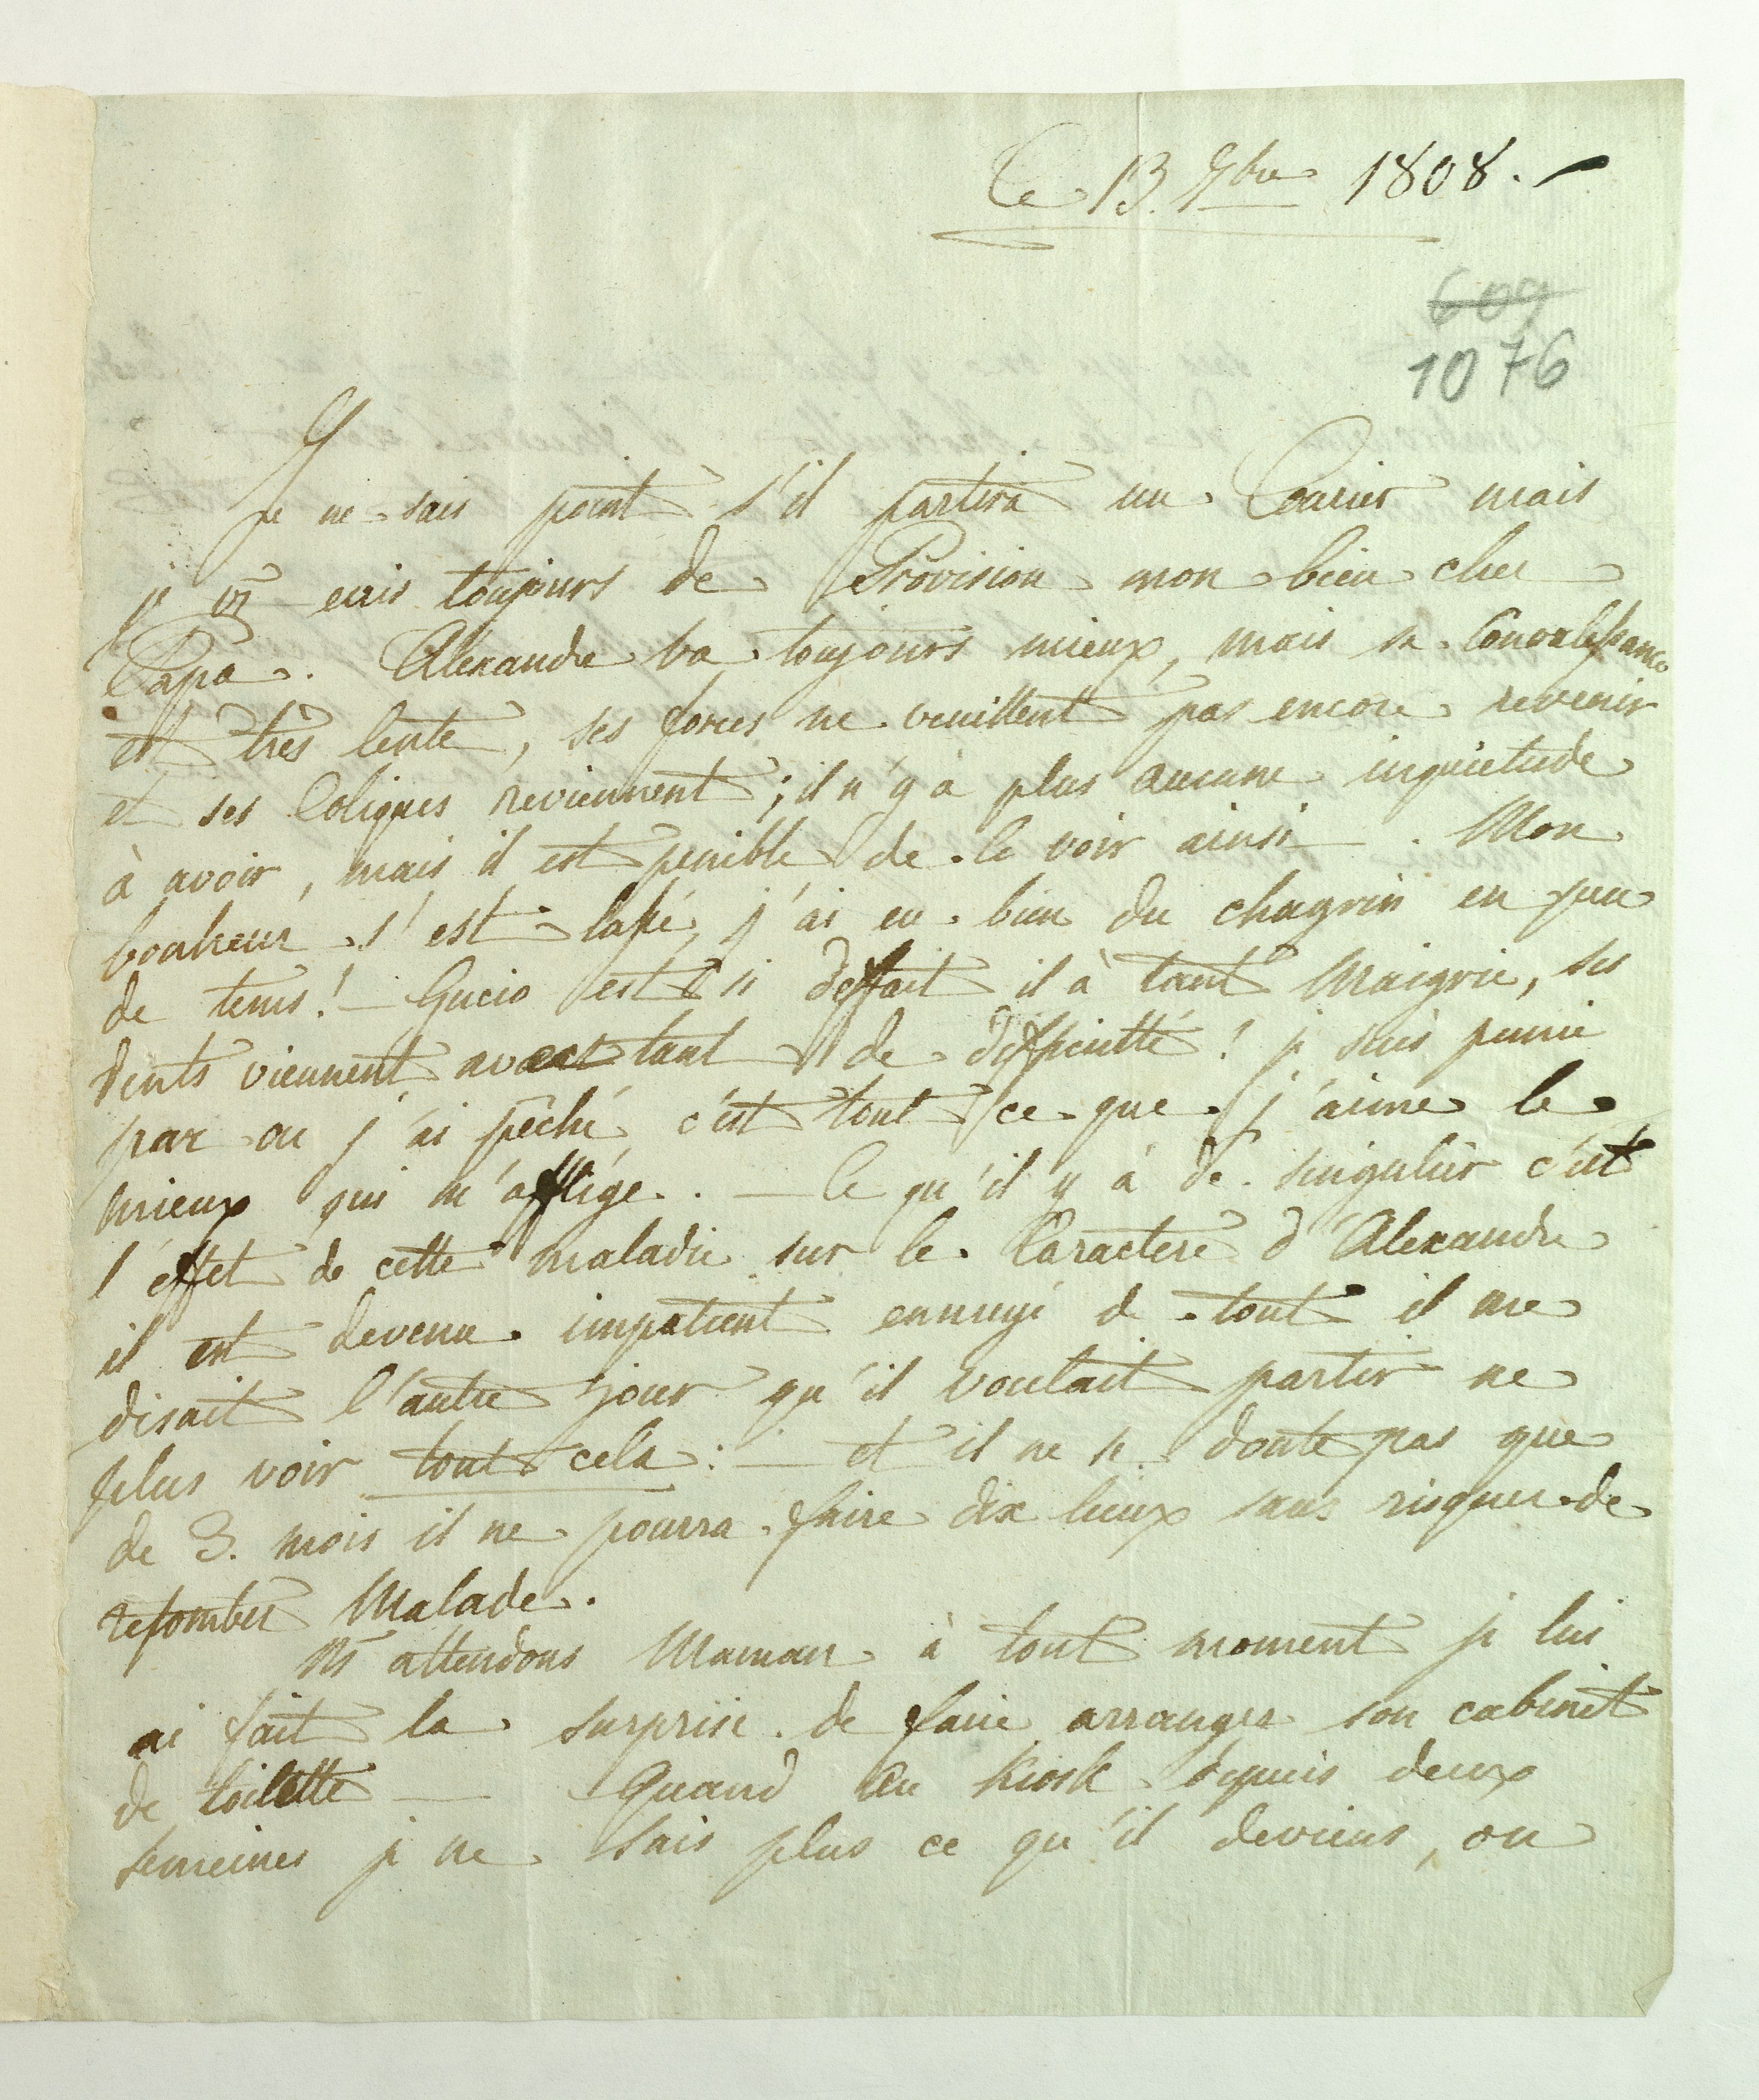 Ce 13. 7bre 1808. -
609
1076
Je ne sais point s'il partira un Courier mais
je vs ecris toujours de Provision mon bien cher
Papa. Alexandre va toujours mieux, mais sa Convalessance
est très lente, ses forces ne veuillent pas encore revenir
et ses Coliques reviennent; il n'y a plus aucune inquietude
à avoir, mais il est penible de le voir ainsi. Mon
bonheur s'est lassé, j'ai eu bien du chagrin en peu
de tems! - Gucio est si deffait il à tant Maigrie, ses
dents viennent avec tant de difficultté! je suis punie
par ou j'ai pêché c'est tout ce que j'aime le
mieux qui m'afflige.. - Ce qu'il y à de singulier c'est
l'effet de cette maladie sur le Caractere d'Alexandre
il est devenu impatient ennuyé de tout il me
disait l'autre jour qu'il voulait partir ne
plus voir tout cela: - et il ne se doute pas que
de 3. mois il ne pourra faire dix lieux sans risquer de
retomber Malade.
Ns attendons Maman à tout moment je lui
ai fait la surprise de faire arranger son cabinet
de toilette - Quand au Kiosk depuis deux
semeines je ne sais plus ce qu'il deviens, on